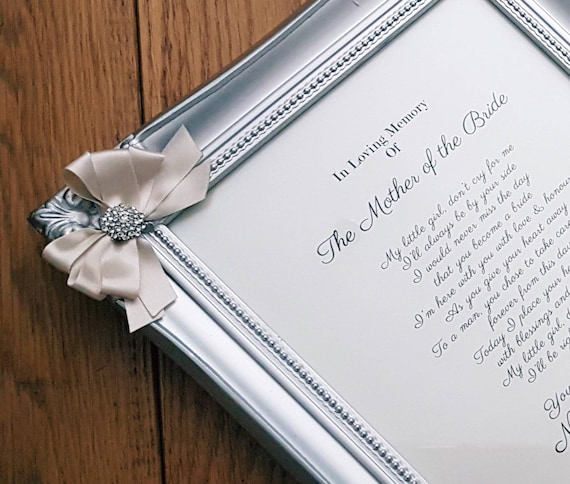 In Loving Memory
Of
The Mother of the Bride
My little girl, don't cry for me
I'll always be by your side
I would never miss the day
that you become a bride
I'm here with you with love & honour
As you give your heart away
To a man you chose to take care
forever from this day
Today I place your
with blessings and
My little girl,
I'll be